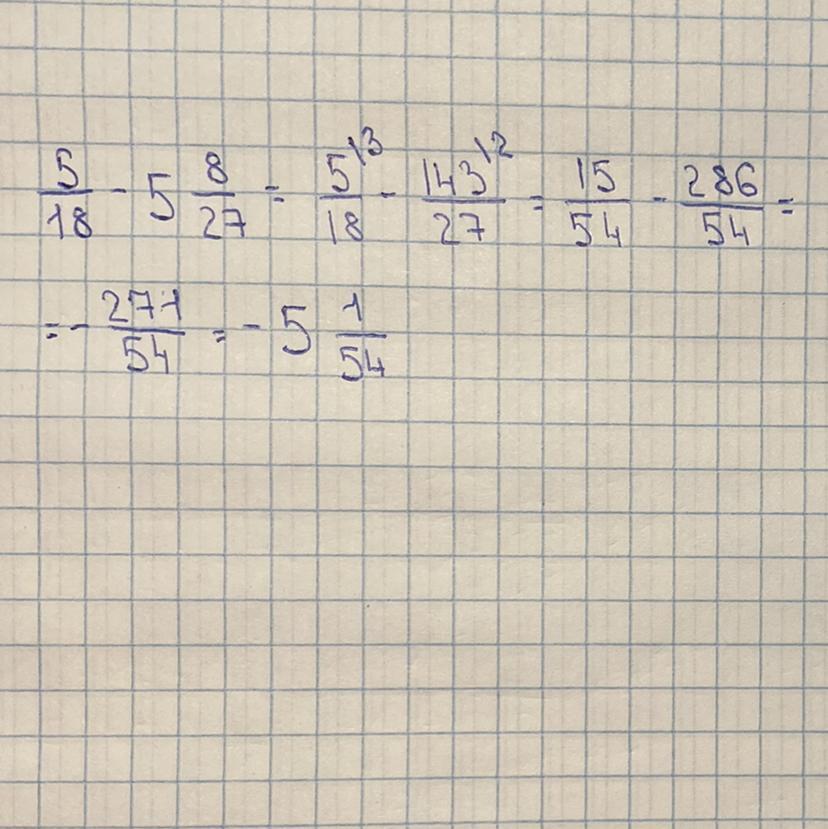 5/18 - 5 8/27 = 5\3/18 - 143\2/27 = 15/54 - 286/54 =
= - 271/54 = - 5 1/54